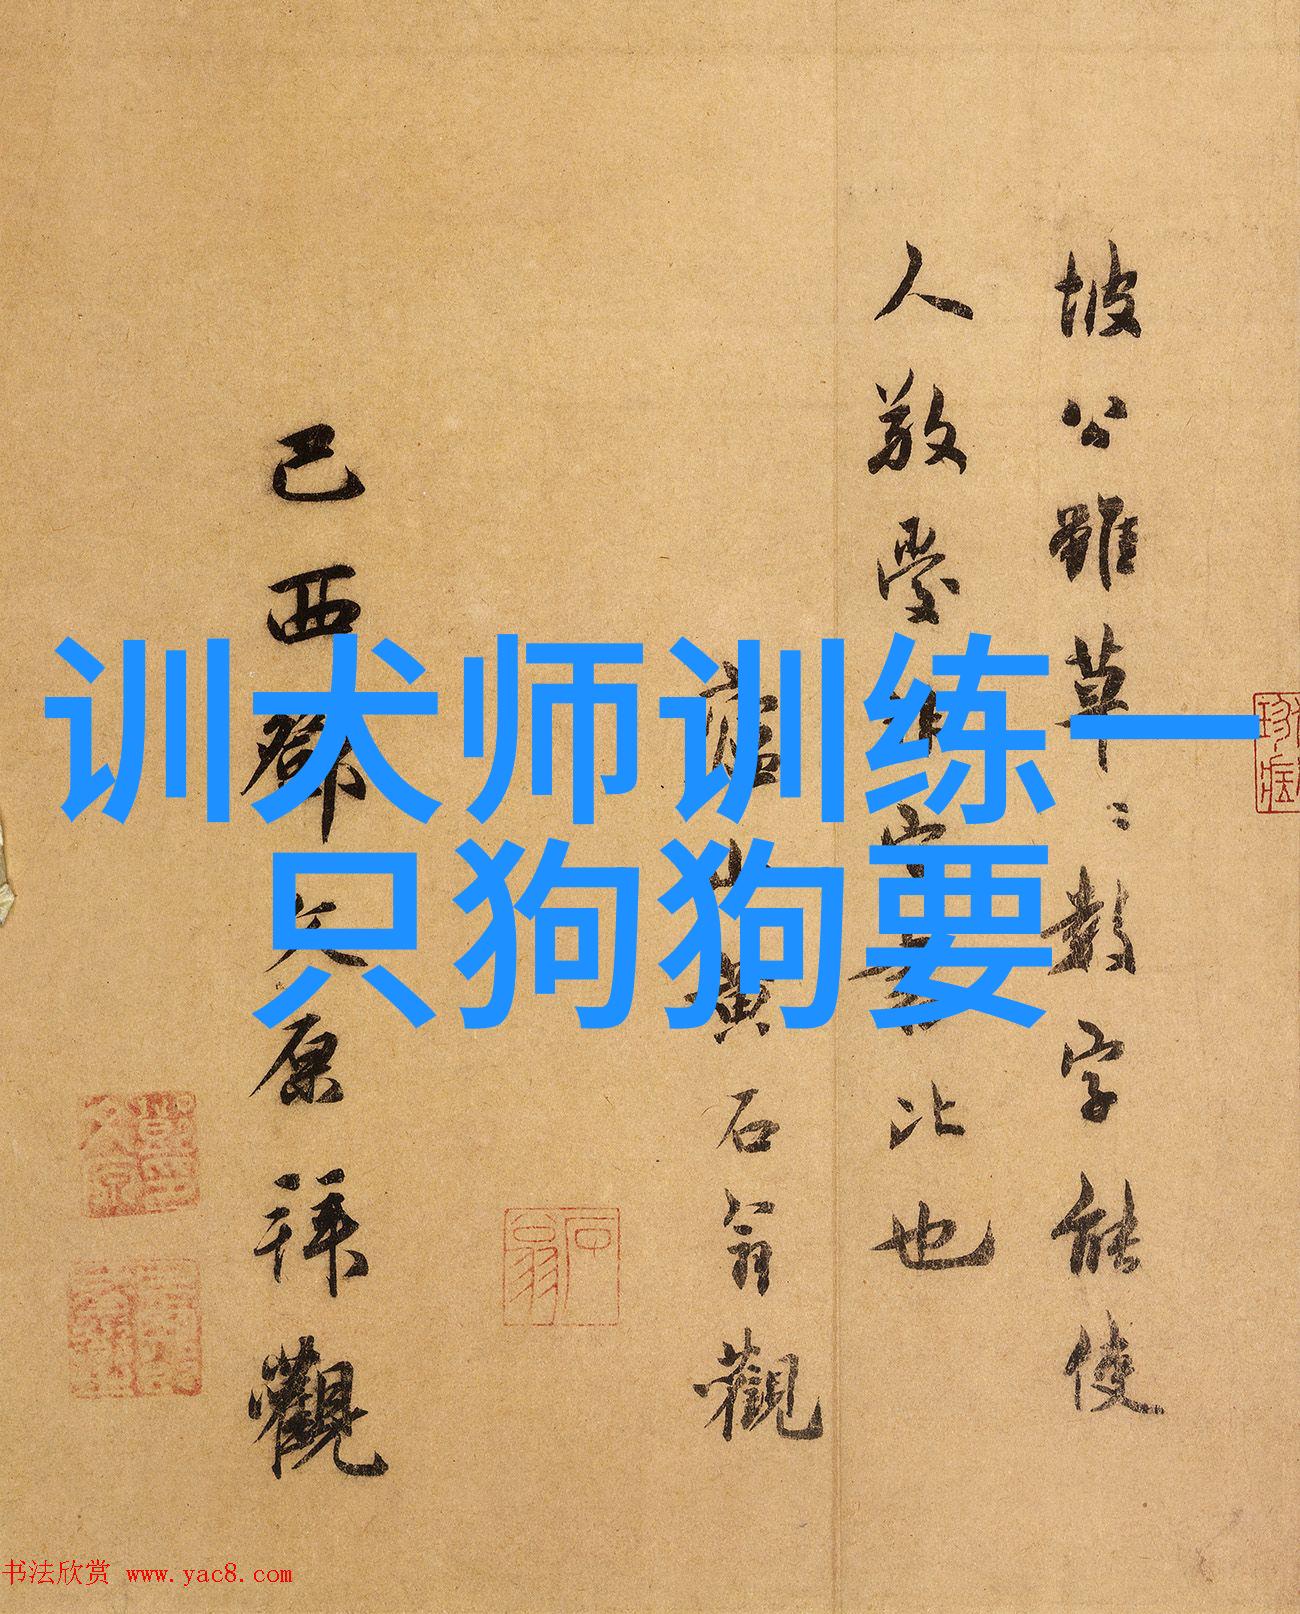 训犬师训练一
只狗狗要
坡公雖草草數字能使
人敬愛
比也
山黄石翁觀
己酉鄧文原拜觀
石翁
书法欣赏 www.yac8.com